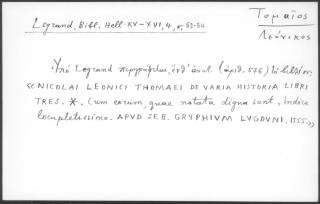 Legrand, Bibl. Hell. XV-XVI, 4, σ. 53-54.
Τομαῖος
Λεόνικος
Ὑπό Legrand περιγράφεται, ὑπ' ἀριθ. (ἀριθ. 576) τό βιβλίον:
«NICOLAI LEONICI THOMAEI DE VARIA HISTORIA LIBRI
TRES. *. Cum eorum, quae notata digna sunt, indice
locupletissimo. APVD SEB. GRYPHIVM LVGDVNI, 1555.»